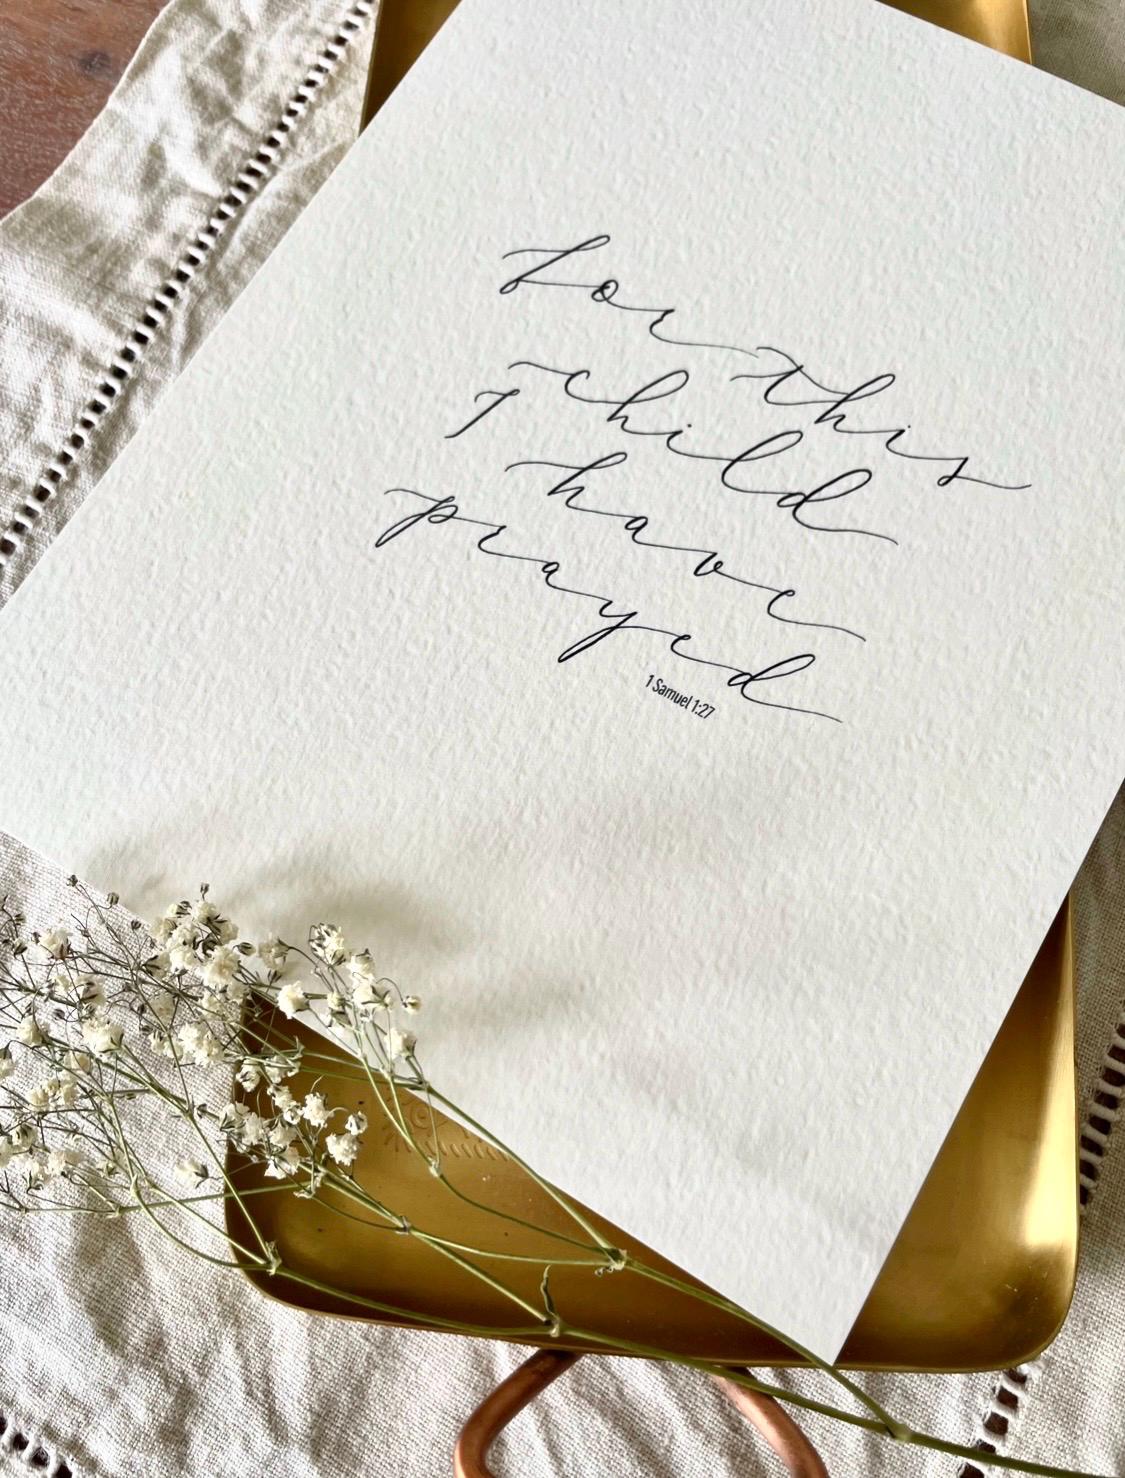 For this
child
I have
prayed
1 Samuel 1:27